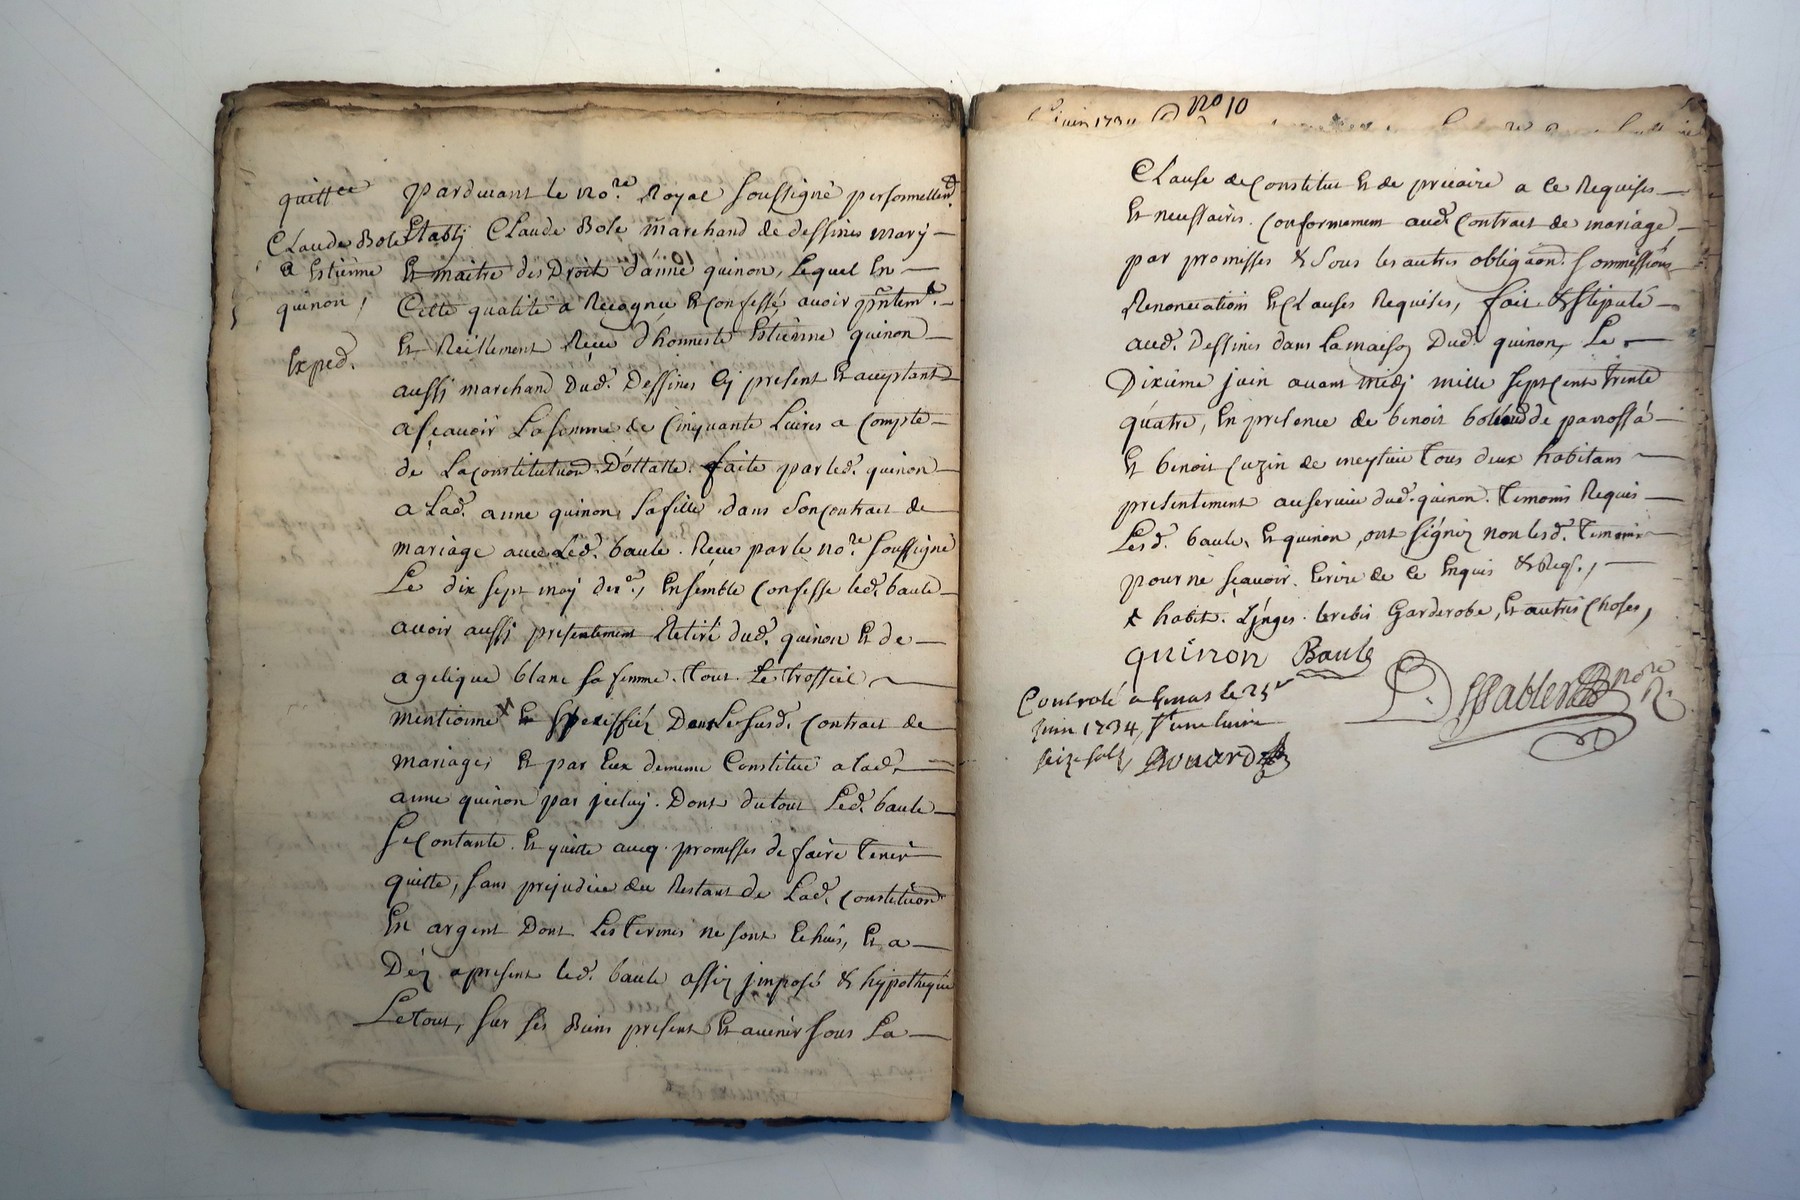 quittce
Claude Bole
a Estienne
quinon,
Exped.
pardevant le nore. Royal soussigné personnellemt.
Etably Claude Bole marchand de dessines mary
Et maitre des Droit d'anne quinon, Lequel En
Cette qualité a Recognu Et Confessé avoir pntemt.
Et Reellement Reçeu d'honneste Estienne quinon
aussi marchand dud. Dessines Cy present Et acceptant
asçavoir La somme de Cinquante Livres a Compte
de La constitution D'ottatte. faite par led. quinon
a Lad. anne quinon, sa fille dans son contrait de
mariage avec Led. baule. Reçeu par le nore. soussigné
Le dix sept may der., Ensemble Confesse led. baule
avoir aussi presentement Retiré dud. quinon Et de
agelique blanc sa femme. Tout Le trossiel
mentionné x Et Speciffiéz Dans Le susd. Contrait de
mariage, Et par Eux dememe Constitué a lad.
anne quinon par jceluy. Dont du tout Led. baule
se Contante. Et quitte aveq. promesses de faire Tenir
quitte, sans prejudice du Restant de Lad. Constitution
En argent Dont Les Termes ne sont Echeus, Et a
Déz apresent led. baule assiz jmposé & hypothequé
Le tout, sur ses Biens present Et avenir sous La
juin 1734 no 10
Clause de Constitut Et de precaire a ce Requises
Et necessaires. Conformement aud. Contrait de mariage
par promesses & sous les autres obligaon. sommissions
Renonciation Et Clauses Requises, fait & stipulé
aud. Dessines dans la maison Dud. quinon, Le
Dixieme juin avant midj mille sept Cent Trente
quatre, En presence de benoit de parossa
Et benoit Cuzin de meyzieu Tous deux habitans
presentement au service dud. quinon. Temoins Requis
Lesd. baule, Et quinon, ont signéz non lesd. Temoins
pour ne sçavoir. Ecrire de ce Enquis & Reqs.,
x habit. Linges. brebis Garderobe, Et autres choses,
quinon Baule
nore R.
Controlé a Genas le 25e
juin 1734, R une livre
seize solz Bouard